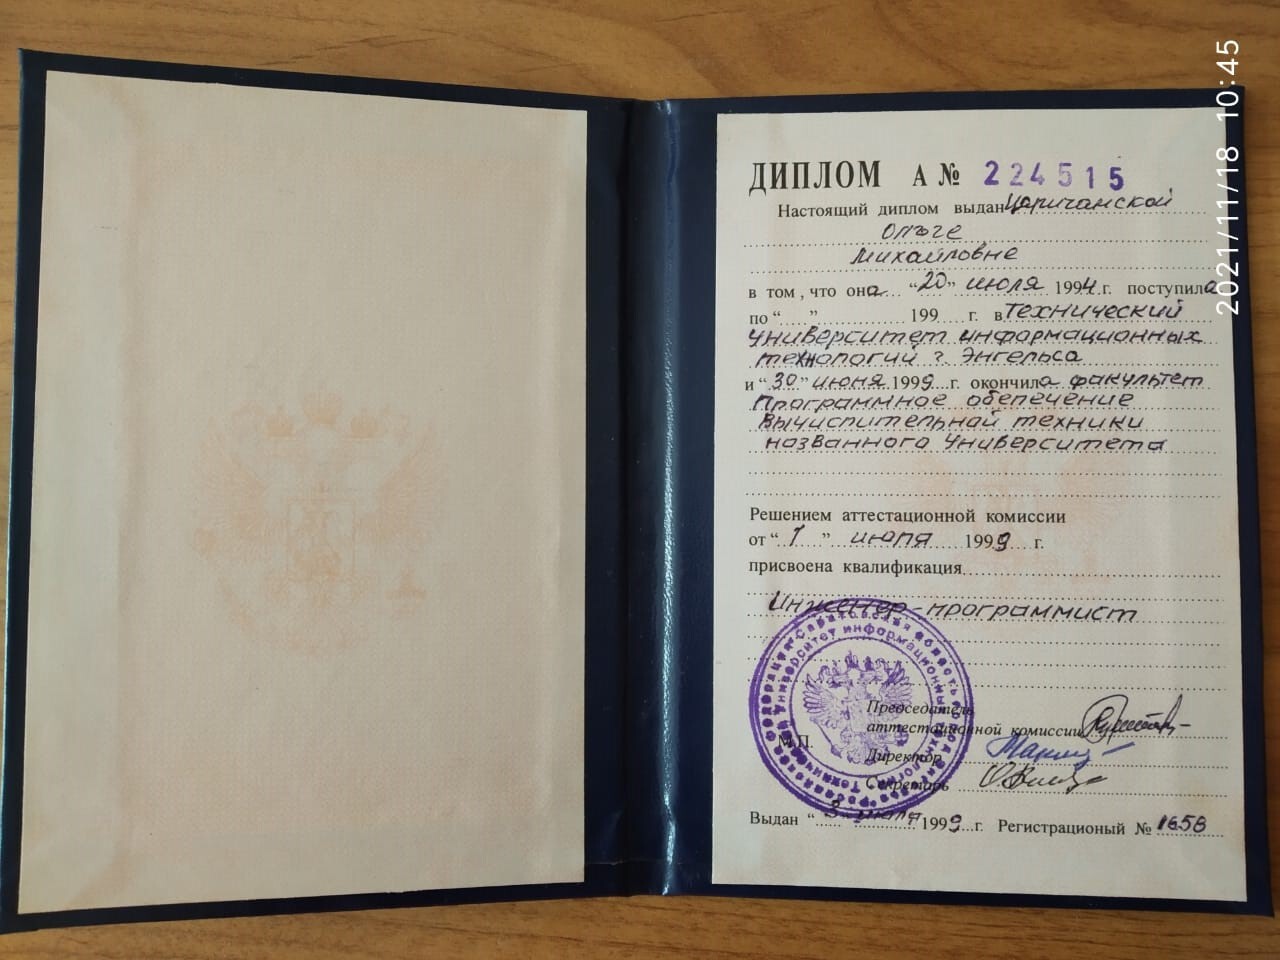 ДИПЛОМ А № 224515
Настоящий диплом выдан Царичанской
Ольге
Михайловне
в том, что она "20" июля 1994 г. поступила
по " " 199 г. в Технический
университет информационных
технологий г. Энгельса
и "30" июня 1999 г. окончила факультет
Программное обепечение
Вычислительной техники
названного Университета
Решением аттестационной комиссии
от "1" июля 1999 г.
присвоена квалификация
Инженер-программист
Председатель
аттестационной комиссии
М.П.
Директор
Секретарь
Выдан "3" июля 1999 г. Регистрационый № 1658
Российская Федерация Саратовская область
Технический университет информационных технологий
2021/11/18 10:45